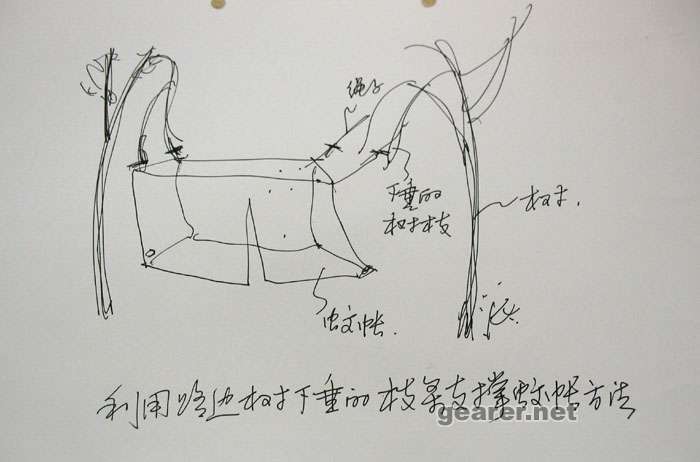 绳子
下垂的
树枝
树
蚊帐
利用路边树下垂的枝条支撑蚊帐方法
gearer.net